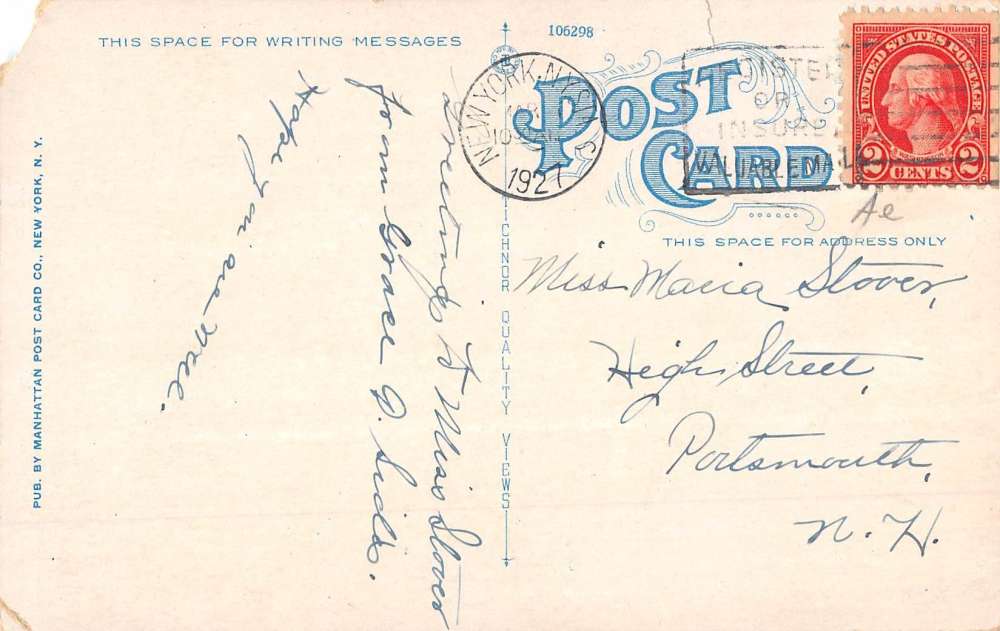 THIS SPACE FOR WRITING MESSAGES
106298
POST
CARD
NEW YORK, N.Y.
1927
REGISTER
OR
INSURE
VALUABLE MAIL
UNITED STATES POSTAGE
2 CENTS 2
THIS SPACE FOR ADDRESS ONLY
Greetings to Miss Stover
from Grace D.
Hope you are well.
Miss Maria Stover,
High Street,
Portsmouth,
N. H.
PUB. BY MANHATTAN POST CARD CO., NEW YORK, N. Y.
TICHNOR QUALITY VIEWS